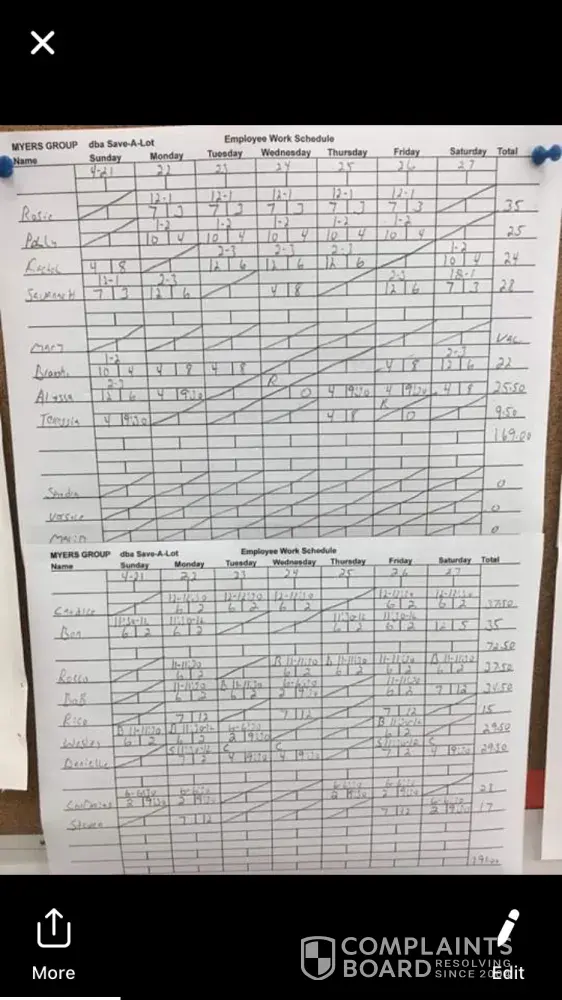 MYERS GROUP dba Save-A-Lot Employee Work Schedule
Name Sunday Monday Tuesday Wednesday Thursday Friday Saturday Total
4-21 22 23 24 25 26 27
12-1 12-1 12-1 12-1 12-1
Rosie 7 3 7 3 7 3 7 3 7 3 35
1-2 1-2 1-2 1-2 1-2
10 4 10 4 10 4 10 4 10 4 25
2-3 2-3 2-3 1-2
4 8 12 6 12 6 12 6 10 4 24
12-1 2-3 2-3 12-1
Savannah 7 3 12 6 4 8 12 6 7 3 28
Mary Vac.
1-2 2-3
10 4 4 8 4 8 4 8 12 6 22
2-3 R
Alyssa 12 6 4 9:30 0 4 9:30 4 9:30 4 8 25.50
R
4 9:30 4 8 0 9.50
169.00
Sandra 0
0
0
MYERS GROUP dba Save-A-Lot Employee Work Schedule
Name Sunday Monday Tuesday Wednesday Thursday Friday Saturday Total
4-21 22 23 24 25 26 27
12-12:30 12-12:30 12-12:30 12-12:30 12-12:30
Candice 6 2 6 2 6 2 6 2 6 2 37.50
Ben 6 2 6 2 6 2 6 2 12 5 35
72.50
11-11:30 B 11-11:30 B 11-11:30 11-11:30 B 11-11:30
Rocco 6 2 6 2 6 2 6 2 6 2 37.50
11-11:30 B 11-11:30 6-6:30 11-11:30
Bob 6 2 6 2 2 9:30 6 2 7 12 34.50
Rico 7 12 7 12 7 12 15
B 11-11:30 6-6:30 B
Wesley 6 2 6 2 2 9:30 6 2 29.50
C C C
Danielle 7 2 4 9:30 4 9:30 7 2 4 9:30 29.50
6-6:30 6-6:30 6-6:30 6-6:30
2 9:30 2 9:30 2 9:30 2 9:30 28
6-6:30
Steven 7 12 7 12 2 9:30 17
191.00
More
Edit
COMPLAINTS
BOARD RESOLVING
SINCE 2004